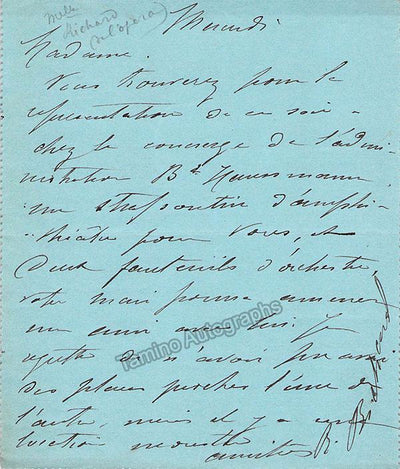 Mlle
Richard
(de l'opéra)
Mercredi
Madame.
Vous trouverez pour la
représentation de ce soir
chez le concierge de l'admi-
nistration Bd Haussmann
un strapontin d'amphi-
théâtre pour vous, et
deux fauteuils d'orchestre,
votre mari pourra amener
un ami avec lui. Je
regrette de n'avoir pu avoir
des places proches l'une de
l'autre, mais il y a
location
amitiés
R. Richard
Tamino Autographs